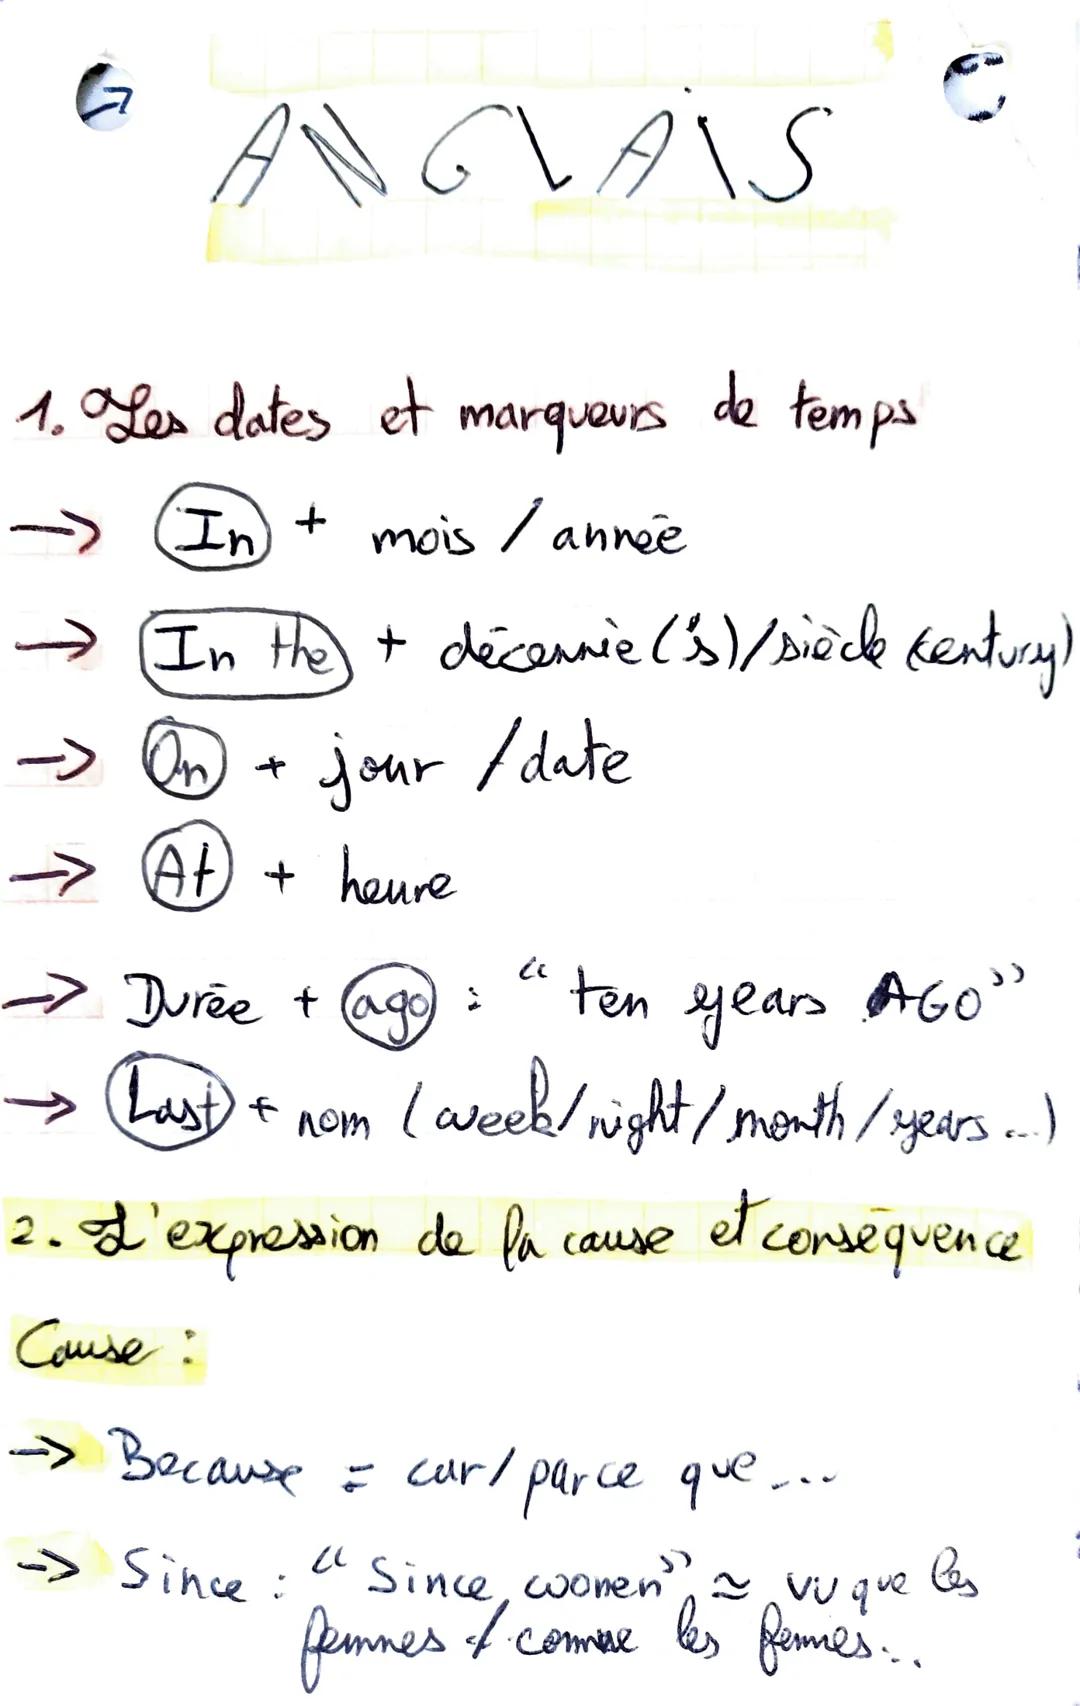 ANGLAIS
1. Les dates et marqueurs de temps
→ In + mois / année
→ In the + décennie ('s)/siècle (century)
→ On + jour / date
→ At + heure
→ Durée + ago : "ten years AGO"
→ Last + nom (week/night/month/years...)
2. L'expression de la cause et conséquence
Cause :
→ Because = car/parce que...
→ Since : "Since women" ≃ vu que les
femmes / comme les femmes...